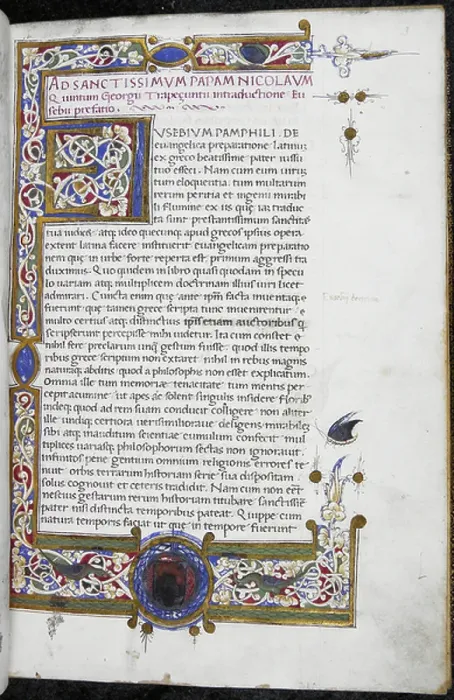 AD SANCTISSIMVM PAPAM NICOLAVM
Quintum Georgii Trapezuntii intraductione Eu
sebii prefatio.
EVSEBIVM PAMPHILI. DE
euangelica preparatione latinum
ex greco beatissime pater iussu
tuo effeci. Nam cum eum uirum
tum eloquentia: tum multarum
rerum peritia et ingenii mirabi
li flumine ex iis quę iam traduc
ta sunt prestantissimum sanctitas
tua iudicet: atq; ideo quecunq; apud grecos ipsius opera
extent latina facere instituerit: euangelicam preparatio
nem quę in urbe forte reperta est: primum aggressi tra
duximus. Quo quidem in libro quasi quodam in specu
lo uariam atq; multiplicem doctrinam illius uiri licet
admirari. Cuncta enim quę ante ipsum facta inuentaq;
fuerunt quę tamen grece scripta tunc inuenirentur:
multo certius atq; distinctius ipsis etiam auctoribus q
scripserunt percepisse mihi uidetur. Ita cum constet
nihil fere preclarum unq; gestum fuisse: quod illis tempo
ribus grece scriptum non extaret: nihil in rebus magnis
naturaq; abditis: quod a philosophis non esset explicatum.
Omnia ille tum memorię tenacitate: tum mentis per
cepit acumine: ut apes ac solent singulis insidere floribus
indeq; quod ad rem suam conducit colligere: non aliter
ille undiq; certiora uerisimilioraue deligens mirabilem
sibi atq; inauditum scientiae cumulum confecit: mul
tiplices uariasq; philosophorum sectas non ignorauit.
infinitos pene gentium omnium religionis errores te
nuit: orbis terrarum historiam serie sua dispositam
solus cognouit et ceteris tradidit. Nam cum non esset
nescius gestarum rerum historiam titubare sanctissime
pater nisi distincta temporibus pateat. Quippe cum
natura temporis faciat ut quę in tempore fuerunt